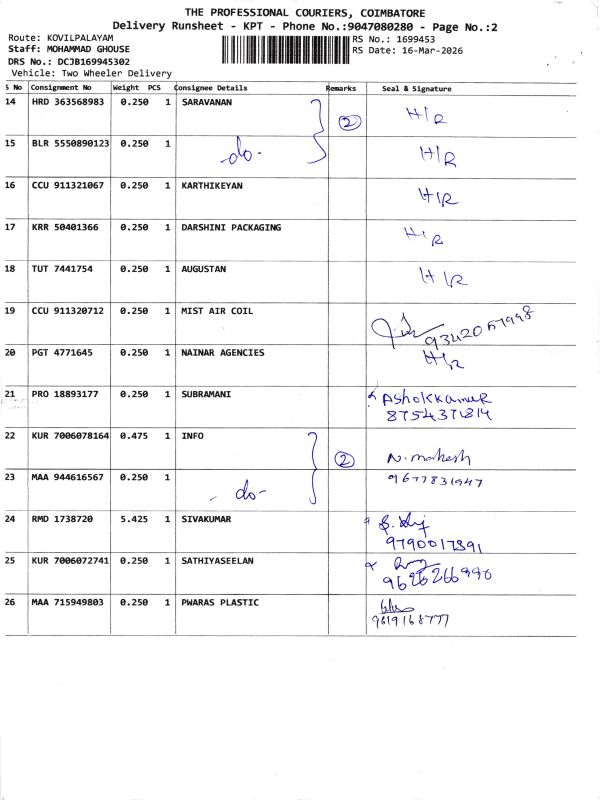 THE PROFESSIONAL COURIERS, COIMBATORE
Delivery Runsheet - KPT - Phone No.:9047080280 - Page No.:2
Route: KOVILPALAYAM RS No.: 1699453
Staff: MOHAMMAD GHOUSE RS Date: 16-Mar-2026
DRS No.: DCJB169945302
Vehicle: Two Wheeler Delivery
S No Consignment No Weight PCS Consignee Details Remarks Seal & Signature
14 HRD 363568983 0.250 1 SARAVANAN 2 H/R
15 BLR 5550890123 0.250 1 -do- H/R
16 CCU 911321067 0.250 1 KARTHIKEYAN H/R
17 KRR 50401366 0.250 1 DARSHINI PACKAGING H/R
18 TUT 7441754 0.250 1 AUGUSTAN H/R
19 CCU 911320712 0.250 1 MIST AIR COIL
20 PGT 4771645 0.250 1 NAINAR AGENCIES H/R
21 PRO 18893177 0.250 1 SUBRAMANI AShokkumar
8754371814
22 KUR 7006078164 0.475 1 INFO 2 N. mahesh
23 MAA 944616567 0.250 1 -do- 9677831947
24 RMD 1738720 5.425 1 SIVAKUMAR
9790017391
25 KUR 7006072741 0.250 1 SATHIYASEELAN
26 MAA 715949803 0.250 1 PWARAS PLASTIC
9619168777